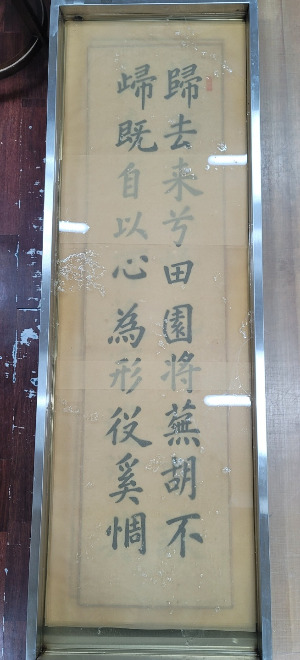 歸去来兮田園將蕪胡不
歸既自以心為形役奚惆